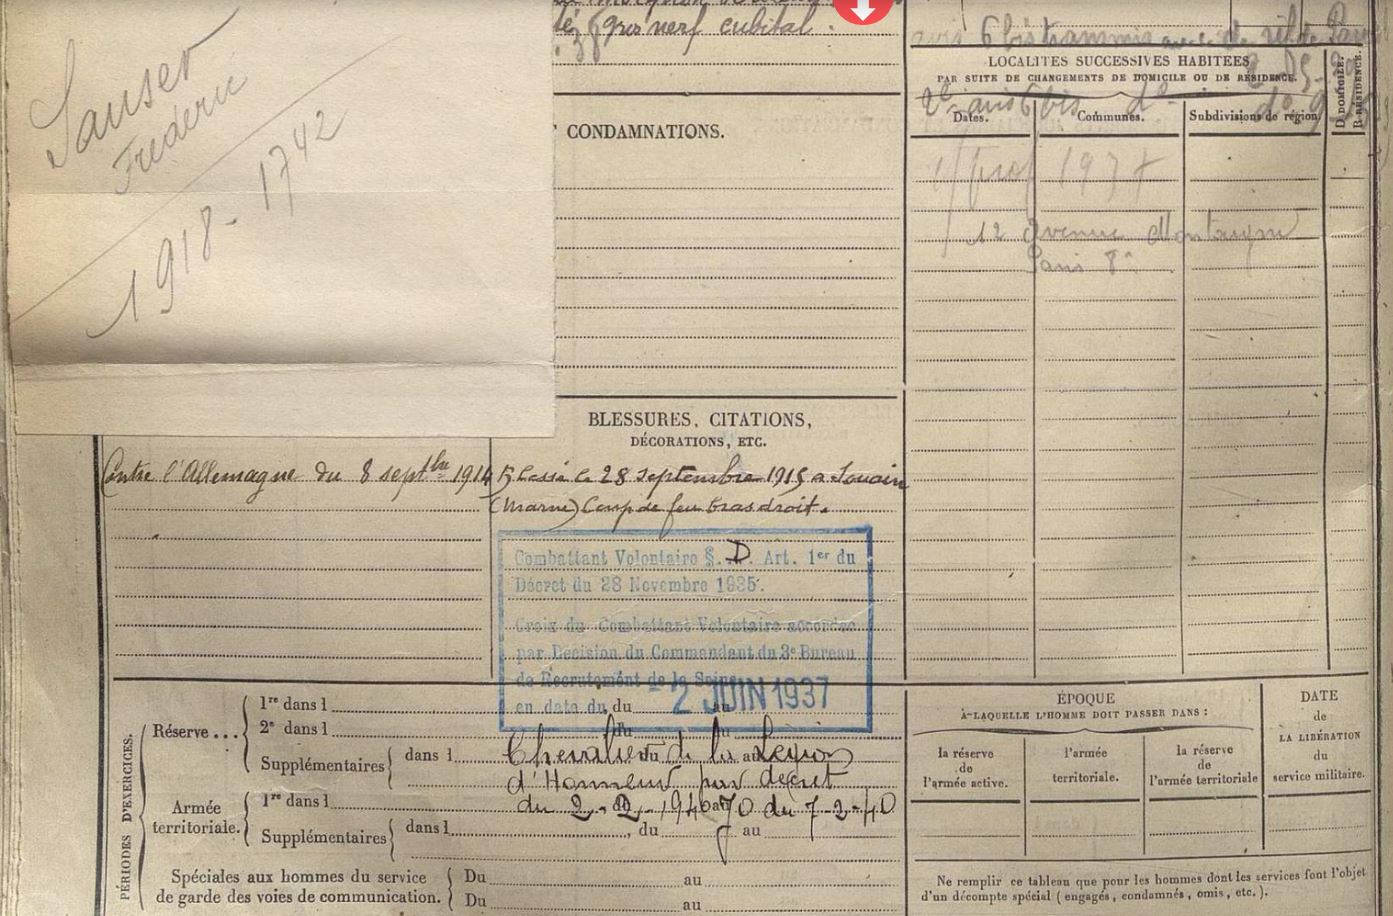 Sauser
Frédéric
1918-1742
gros nerf cubital.
CONDAMNATIONS.
LOCALITÉS SUCCESSIVES HABITÉES
PAR SUITE DE CHANGEMENTS DE DOMICILE OU DE RÉSIDENCE.
Dates.
Communes.
Subdivisions de région
D. DOMICILE.
R. RÉSIDENCE.
1937
12 Avenue Montaigne
Paris 8e
BLESSURES, CITATIONS,
DÉCORATIONS, ETC.
Contre l'Allemagne du 8 septbre 1914
Blessé le 28 Septembre 1915 a Souain
(Marne) Coup de feu bras droit.
Combattant Volontaire §. D. Art. 1er du
Décret du 28 Novembre 1935.
Croix du Combattant Volontaire accordée
par Décision du Commandant du 3e Bureau
de Recrutement de la Seine
en date du - 2 JUIN 1937
Chevalier de la Légion
d'Honneur par décret
du 2-2-1940 JO du 7-2-40
PÉRIODES D'EXERCICES.
Réserve...
1re dans l du au
2e dans l du au
Supplémentaires dans l du au
Armée
territoriale.
1re dans l
Supplémentaires dans l , du au
Spéciales aux hommes du service
de garde des voies de communication.
Du au
Du au
ÉPOQUE
À LAQUELLE L'HOMME DOIT PASSER DANS :
la réserve
de
l'armée active.
l'armée
territoriale.
la réserve
de
l'armée territoriale
DATE
de
LA LIBÉRATION
du
service militaire.
Ne remplir ce tableau que pour les hommes dont les services font l'objet
d'un décompte spécial (engagés, condamnés, omis, etc.).